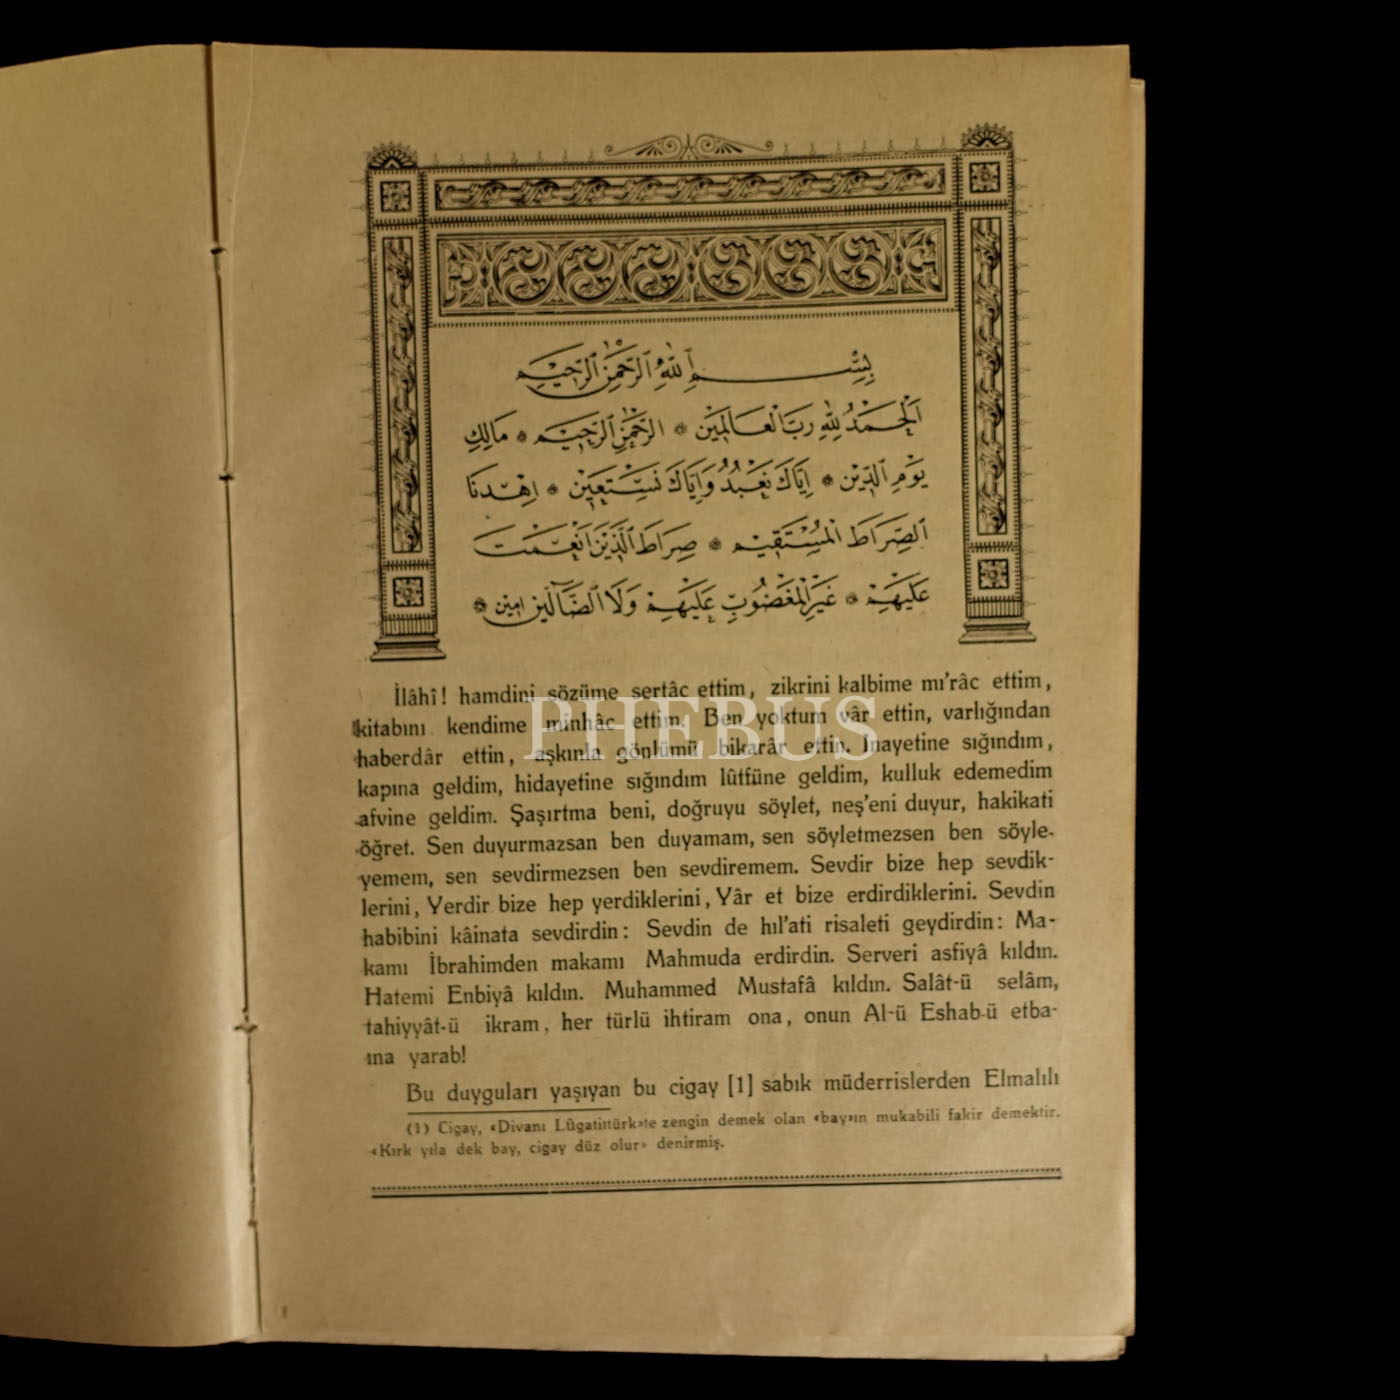 بِسْمِ اللهِ الرَّحْمٰنِ الرَّحِيمِ
اَلْحَمْدُ لِلهِ رَبِّ الْعَالَمِينَ * الرَّحْمٰنِ الرَّحِيمِ * مَالِكِ
يَوْمِ الدِّينِ * اِيَّاكَ نَعْبُدُ وَاِيَّاكَ نَسْتَعِينُ * اِهْدِنَا
الصِّرَاطَ الْمُسْتَقِيمَ * صِرَاطَ الَّذِينَ اَنْعَمْتَ
عَلَيْهِمْ * غَيْرِ الْمَغْضُوبِ عَلَيْهِمْ وَلَا الضَّالِّينَ امين *
İlâhî! hamdini sözüme sertâc ettim, zikrini kalbime mı'râc ettim,
kitabını kendime minhâc ettim. Ben yoktum vâr ettin, varlığından
haberdâr ettin, aşkınla gönlümü bikarâr ettin. Inayetine sığındım,
kapına geldim, hidayetine sığındım lûtfüne geldim, kulluk edemedim
afvine geldim. Şaşırtma beni, doğruyu söylet, neş'eni duyur, hakikati
öğret. Sen duyurmazsan ben duyamam, sen söyletmezsen ben söyle-
yemem, sen sevdirmezsen ben sevdiremem. Sevdir bize hep sevdik-
lerini, Yerdir bize hep yerdiklerini, Yâr et bize erdirdiklerini. Sevdin
habibini kâinata sevdirdin: Sevdin de hıl'ati risaleti geydirdin: Ma-
kamı İbrahimden makamı Mahmuda erdirdin. Serveri asfiyâ kıldın.
Hatemi Enbiyâ kıldın. Muhammed Mustafâ kıldın. Salât-ü selâm,
tahiyyât-ü ikram, her türlü ihtiram ona, onun Al-ü Eshab-ü etba-
ına yarab!
Bu duyguları yaşıyan bu cigay [1] sabık müderrislerden Elmalılı
(1) Cigay, «Divanı Lûgatittürk»te zengin demek olan «bay»ın mukabili fakir demektir.
«Kırk yıla dek bay, cigay düz olur» denirmiş.
PHEBUS